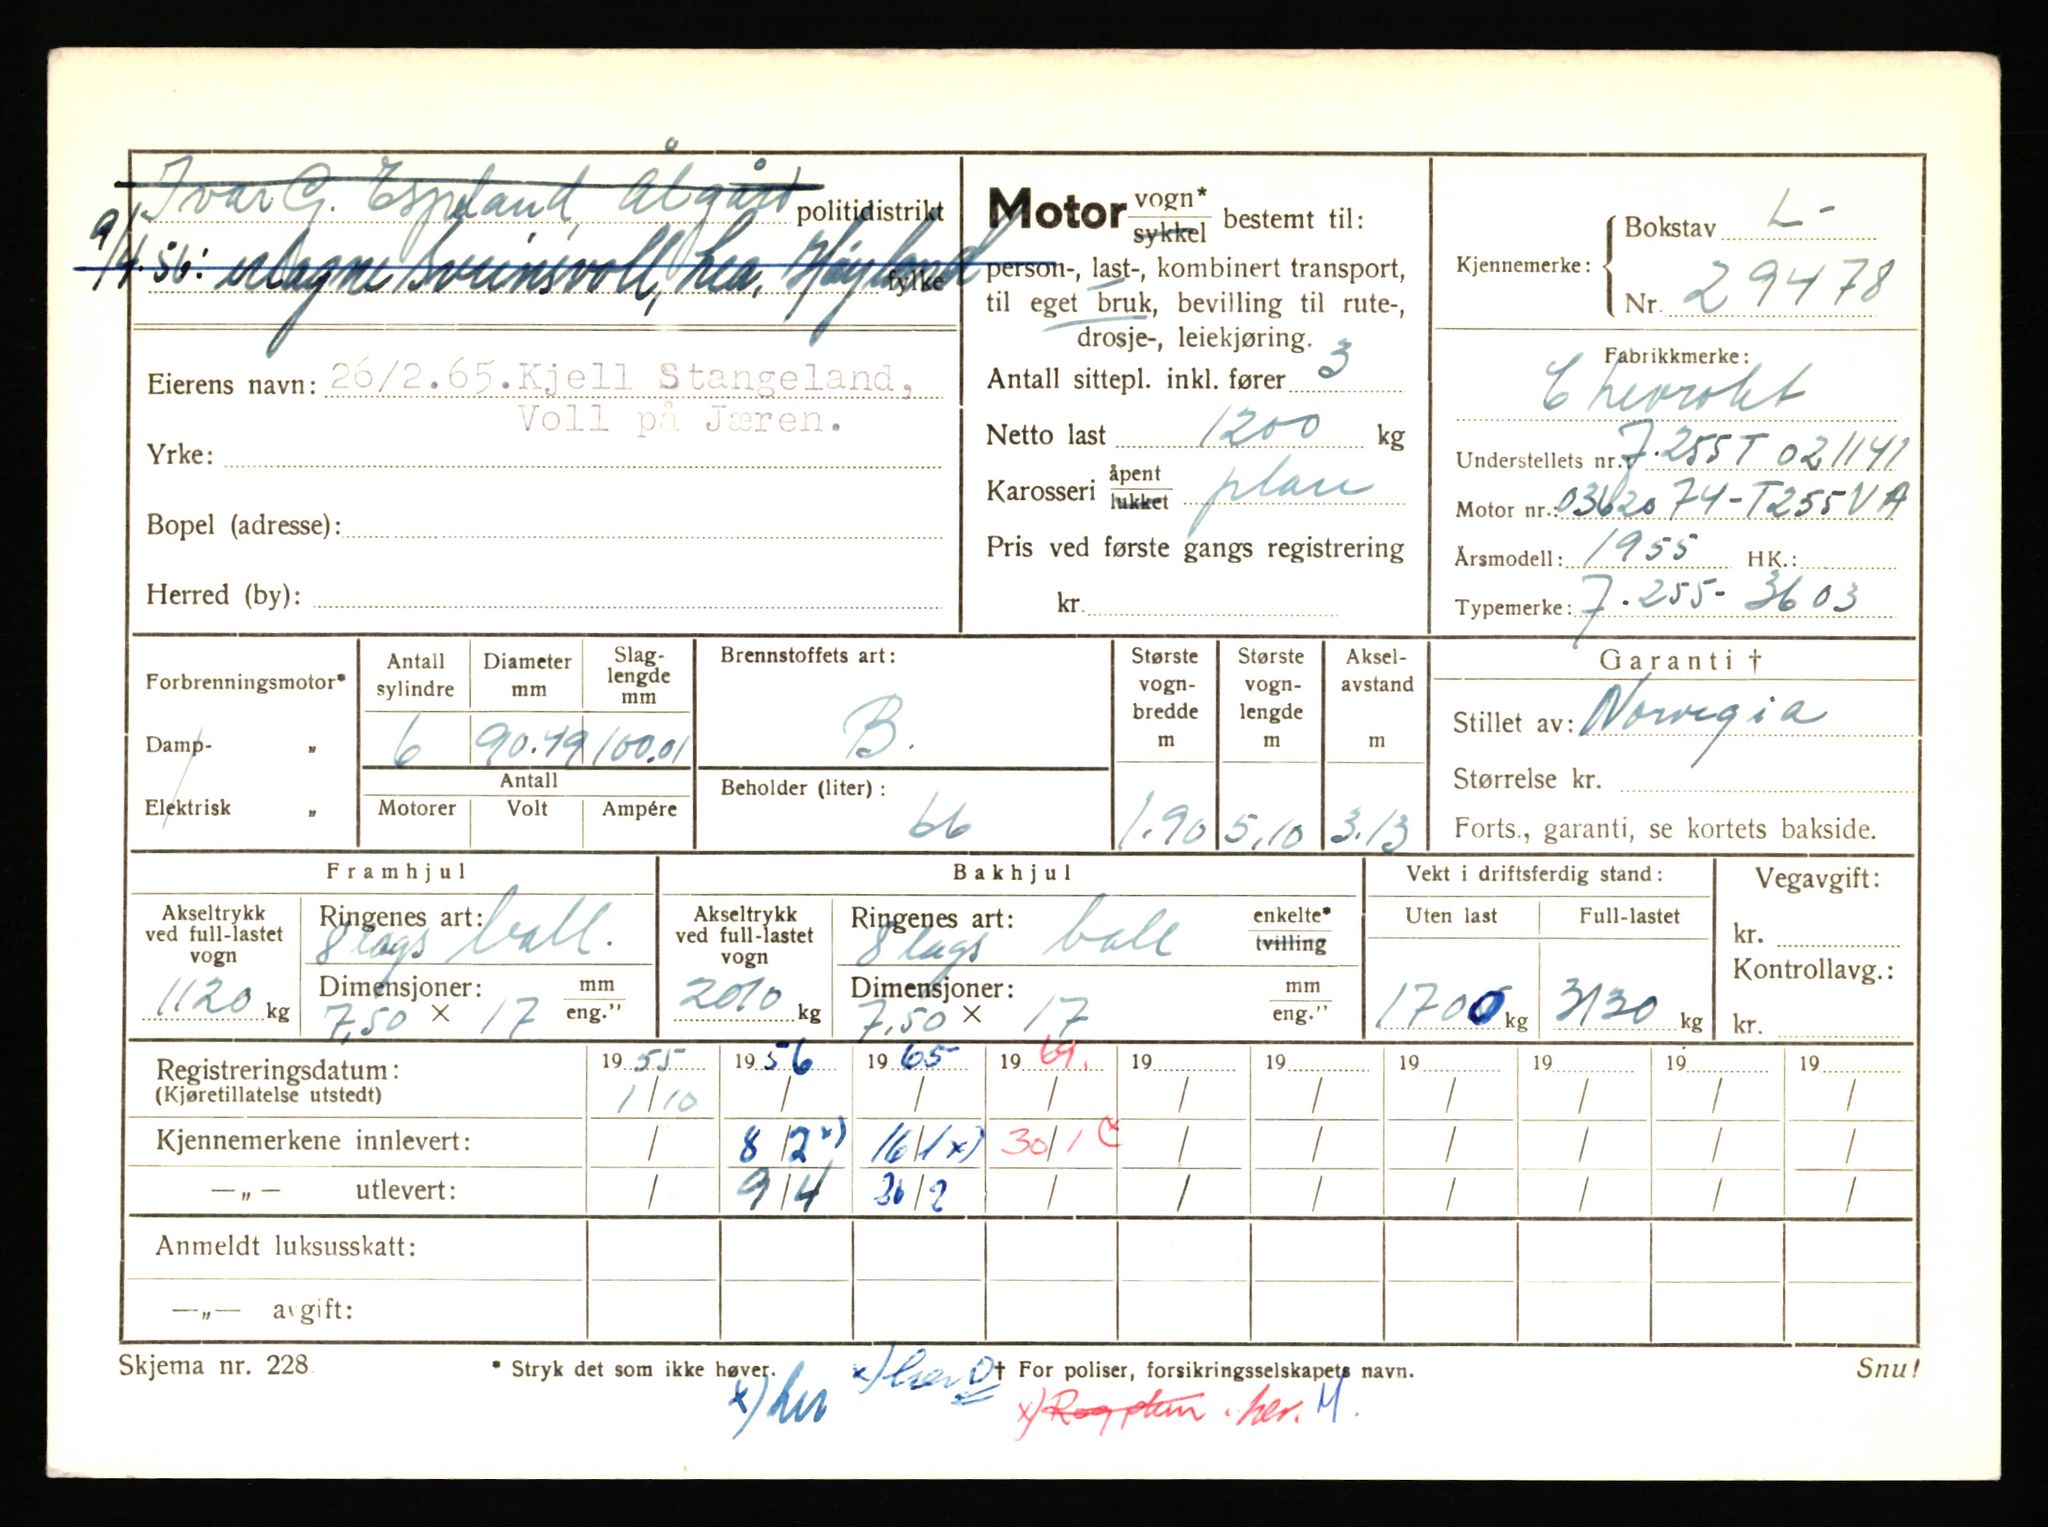 Ivar G. Espeland, Ålgård politidistrikt
9/4.56: Magne Sveinsvoll, Lea, Høyland fylke
Eierens navn: 26/2.65. Kjell Stangeland,
Voll på Jæren.
Yrke:
Bopel (adresse):
Herred (by):
Motor vogn* sykkel bestemt til:
person-, last-, kombinert transport,
til eget bruk, bevilling til rute-,
drosje-, leiekjøring.
Antall sittepl. inkl. fører 3
Netto last 1200 kg
Karosseri åpent lukket plan
Pris ved første gangs registrering
kr.
Kjennemerke: Bokstav L-
Nr. 29478
Fabrikkmerke:
Chevrolet
Understellets nr.: 7.255T 021141
Motor nr.: 0362074-T255VA
Årsmodell: 1955 HK.:
Typemerke: 7.255-3603
Forbrenningsmotor*
Damp- „
Elektrisk „
Antall sylindre Diameter mm Slaglengde mm
6 90.49 100.01
Antall
Motorer Volt Ampére
Brennstoffets art:
B.
Beholder (liter):
66
Største vogn-bredde m Største vogn-lengde m Aksel-avstand m
1.90 5,10 3.13
Garanti †
Stillet av: Norvegia
Størrelse kr.
Forts., garanti, se kortets bakside.
Framhjul
Akseltrykk ved full-lastet vogn
1120 kg
Ringenes art:
8 lags ball.
Dimensjoner: mm eng."
7,50 × 17
Bakhjul
Akseltrykk ved full-lastet vogn
2010 kg
Ringenes art: enkelte* tvilling
8 lags ball
Dimensjoner: mm eng."
7,50 × 17
Vekt i driftsferdig stand:
Uten last Full-lastet
1700 kg 3130 kg
Vegavgift:
kr.
Kontrollavg.:
kr.
Registreringsdatum: 1955 1956 1965 1969. 19 19 19 19 19 19
(Kjøretillatelse utstedt) 1/10 / / / / / / / / /
Kjennemerkene innlevert: / 8/2 x) 16/1 x) 30/1 (x / / / / / /
—„— utlevert: / 9/4 26/2 / / / / / / /
Anmeldt luksusskatt:
—„— avgift:
Skjema nr. 228 * Stryk det som ikke høver. † For poliser, forsikringsselskapets navn. Snu!
x) her x) her
x) her. M.